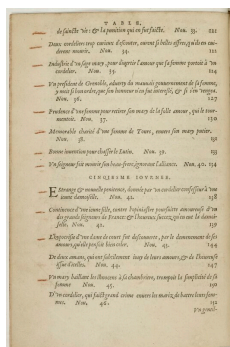 TABLE.
de saincte vie: & la punition qui en fut faicte. Nou. 33. 111
Deux cordeliers trop curieux d'escouter, eurent si belles affres, qu'ils en cuiderent mourir. Nou. 34.
Industrie d'vn sage mary, pour diuertir l'amour que sa femme portoit à vn
cordelier. Nou. 35. 124
Vn president de Grenoble, aduerty du mauuais gouuernement de sa femme,
y mist si bon ordre, que son honneur n'en fut interessé, & si s'en vengea.
Nou. 36. 127
Prudence d'vne femme pour retirer son mary de la folle amour, qui le tourmentoit. Nou. 37. 130
Memorable charité d'vne femme de Tours, enuers son mary putier.
Nou. 38.
Bonne inuention pour chasser le Lutin. Nou. 39. 133
Vn seigneur fait mourir son beau-frere, ignorant l'alliance. Nou. 40. 134
CINQIESME IOVRNEE.
Estrange & nouuelle penitence, donnee par vn cordelier confesseur à vne
ieune damoiselle. Nou. 41. 138
Continence d'vne ieune fille, contre l'opiniastre poursuitte amoureuse d'vn
des grands seigneurs de France: & l'heureux succez qu'en eut la damoiselle. Nou. 42.
L'hypocrisie d'vne dame de court fut descouuerte, par le demenement de ses
amours, qu'elle pensoit bien celer. Nou. 43. 144
De deux amans, qui ont subtilement iouy de leurs amours, & de l'heureuse
issue d'icelles. Nou. 44. 147
Vn mary baillant les Innocens à sa chambriere, trompoit la simplicité de sa
femme Nou. 45. 150
D'vn cordelier, qui faict grand crime enuers les mariz de battre leurs femmes. Nou. 46. 152
Vn gentil-